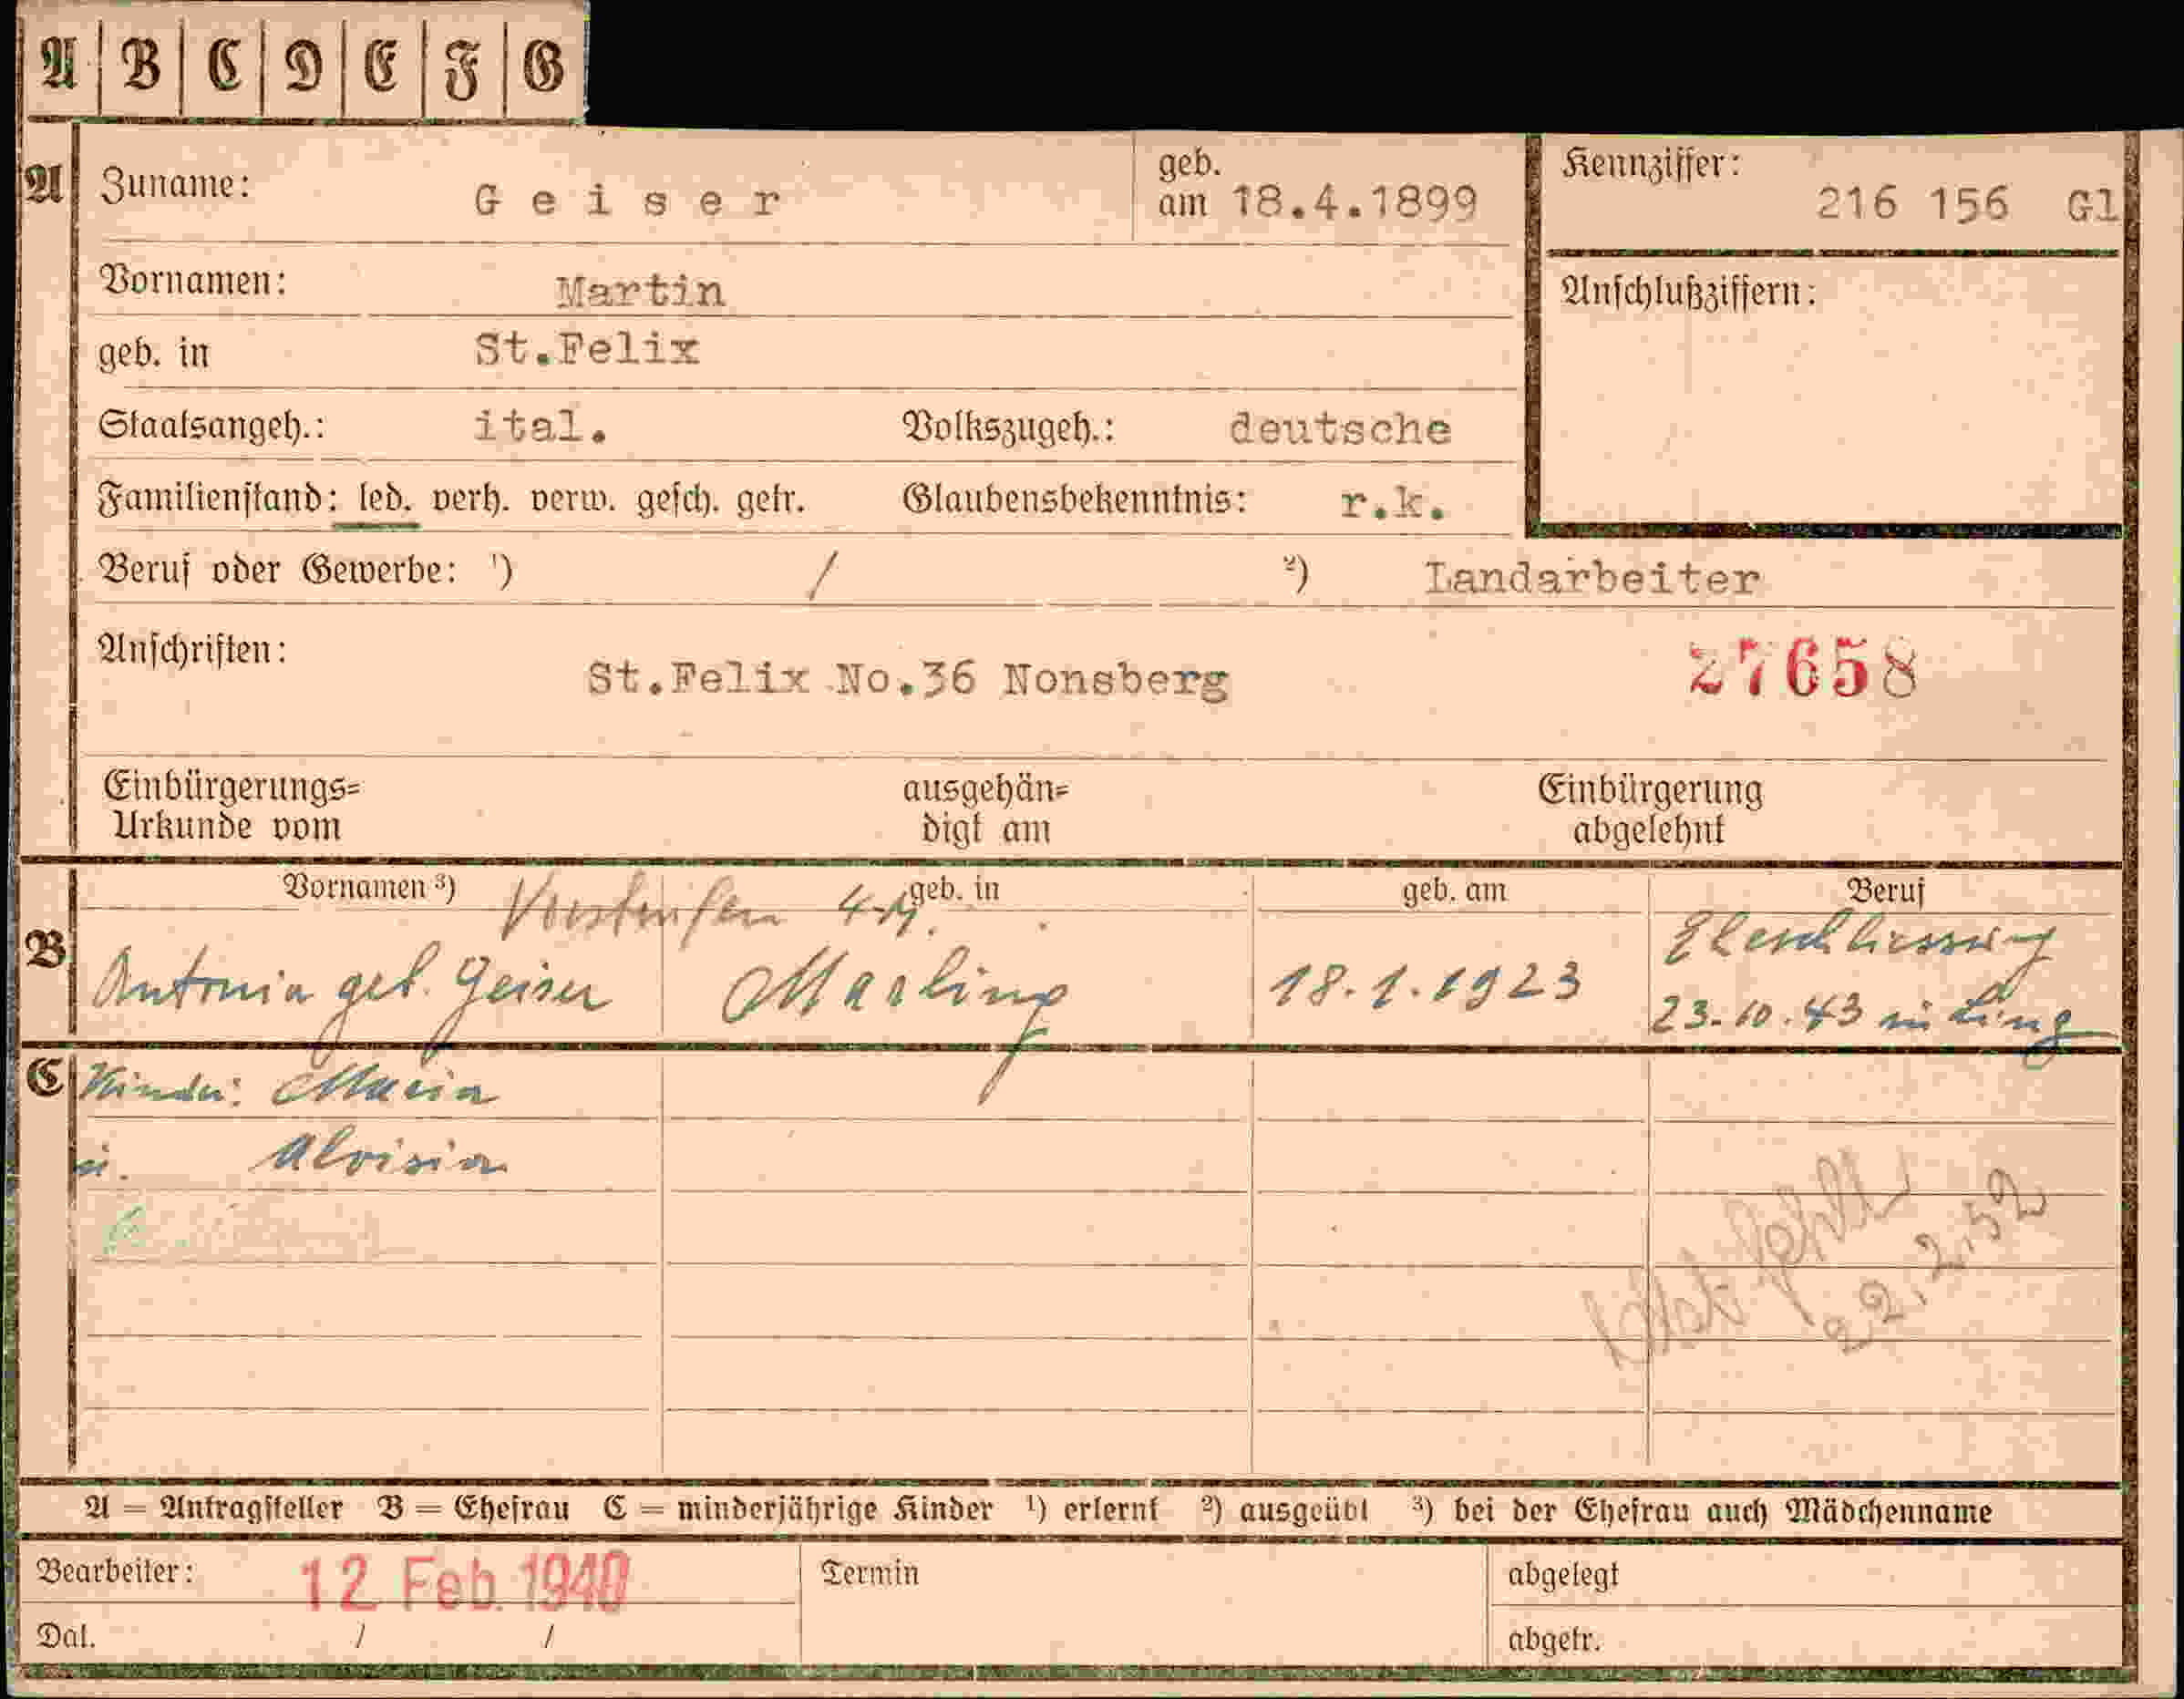 A B C D E F G
A Zuname: Geiser geb. am 18.4.1899 Kennziffer: 216 156 Gl
Vornamen: Martin Anschlußziffern:
geb. in St.Felix
Staatsangeh.: ital. Volkszugeh.: deutsche
Familienstand: led. verh. verw. gesch. getr. Glaubensbekenntnis: r.k.
Beruf oder Gewerbe: ¹) / ²) Landarbeiter
Anschriften: St.Felix No.36 Nonsberg 27658
Einbürgerungs= ausgehän= Einbürgerung
Urkunde vom digt am abgelehnt
Vornamen ³) geb. in geb. am Beruf
Eheschliessung
B Antonia geb. Geiser Marling 18.1.1923 23.10.43 in Linz
C Kinder: Maria
u. Aloisia
22.2.52
A = Antragsteller B = Ehefrau C = minderjährige Kinder ¹) erlernt ²) ausgeübt ³) bei der Ehefrau auch Mädchenname
Bearbeiter: 12 Feb. 1940 Termin abgelegt
Dat. / / abgetr.